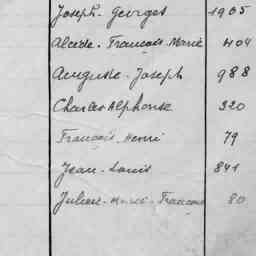 Joseph-Georges 1905
Alcide-François-Marie 404
Auguste-Joseph 988
Charles Alphonse 320
François-Henri 79
Jean-Louis 841
Julien-Marie-François 80